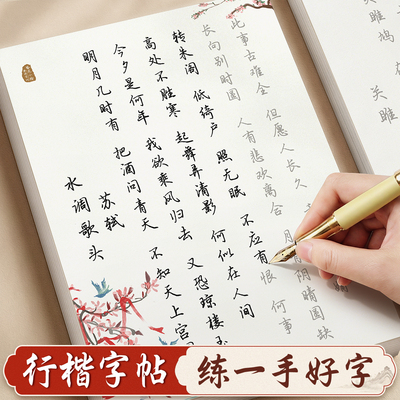 水调歌头
苏轼
明月几时有 把酒问青天 不知天上宫
今夕是何年 我欲乘风归去 又恐琼楼玉
高处不胜寒 起舞弄清影 何似在人间
转朱阁 低绮户 照无眠 不应有恨 何事
长向别时圆 人有悲欢离合 月 阴晴圆缺
此事古难全 但愿人长久
关雎
雎鸠 在
行楷字帖
练一手好字